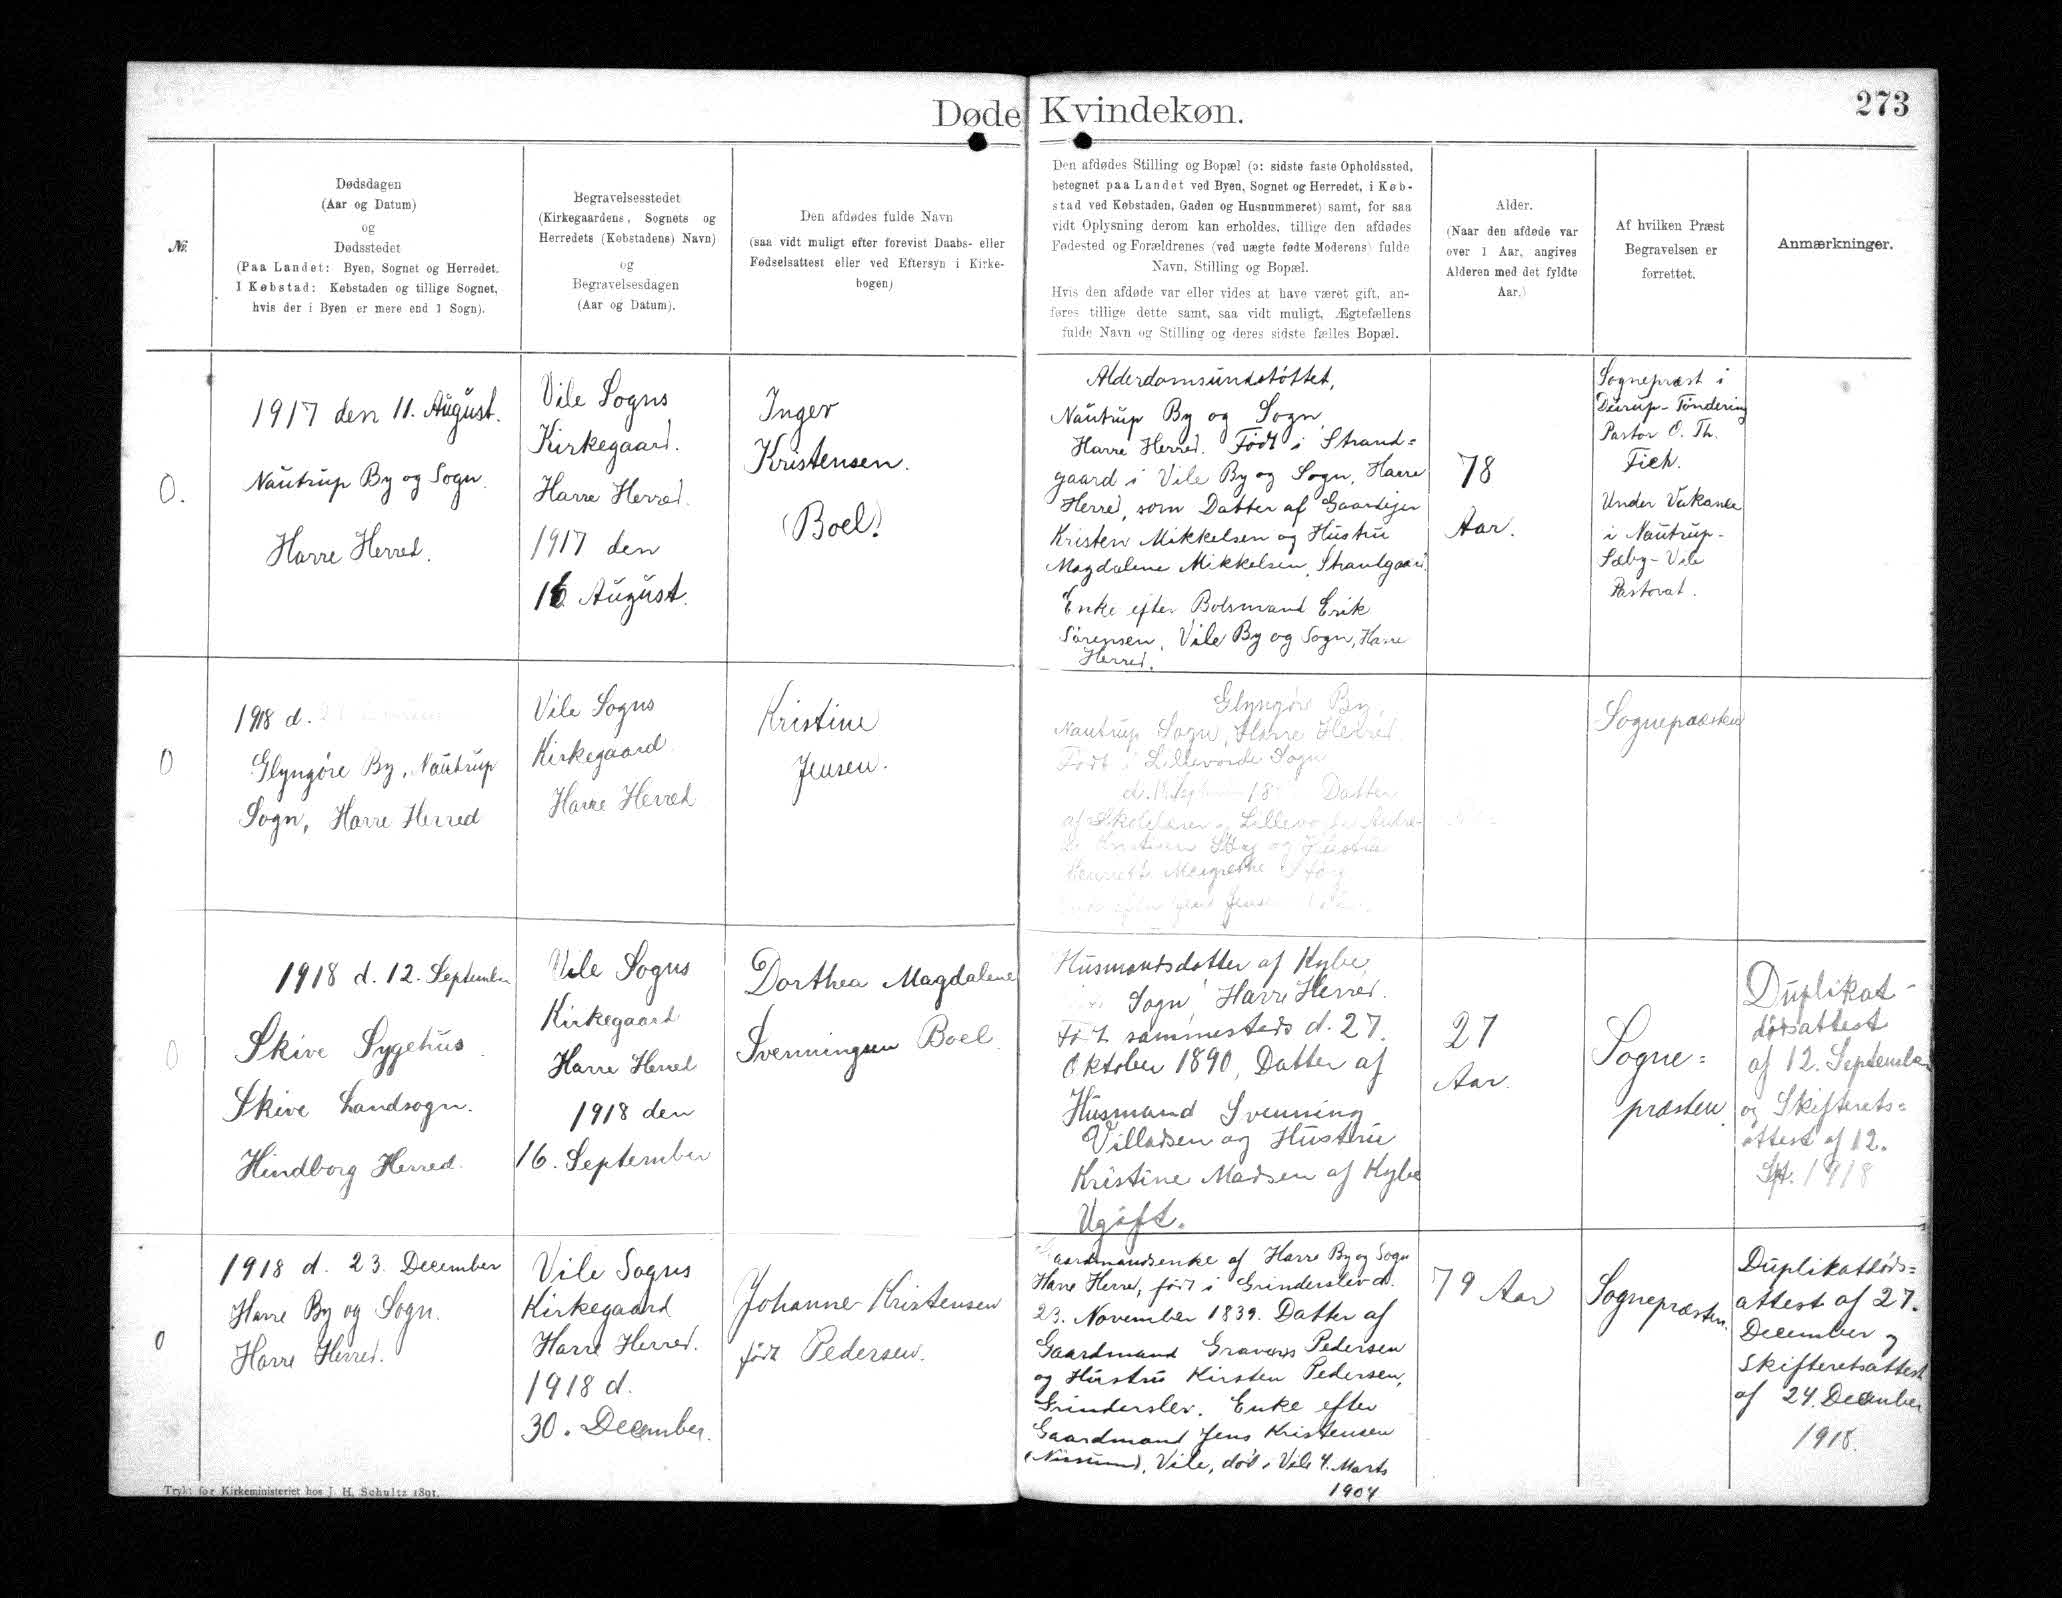 Døde Kvindekøn.
273
Nr.
Dødsdagen
(Aar og Datum)
og
Dødsstedet
(Paa Landet: Byen, Sognet og Herredet.
I Købstad: Købstaden og tillige Sognet,
hvis der i Byen er mere end 1 Sogn).
Begravelsesstedet
(Kirkegaardens, Sognets og
Herredets (Købstadens) Navn)
og
Begravelsesdagen
(Aar og Datum).
Den afdødes fulde Navn
(saa vidt muligt efter forevist Daabs- eller
Fødselsattest eller ved Eftersyn i Kirke-
bogen)
Den afdødes Stilling og Bopæl (ɔ: sidste faste Opholdssted,
betegnet paa Landet ved Byen, Sognet og Herredet, i Køb-
stad ved Købstaden, Gaden og Husnummeret) samt, for saa
vidt Oplysning derom kan erholdes, tillige den afdødes
Fødested og Forældrenes (ved uægte fødte Moderens) fulde
Navn, Stilling og Bopæl.
Hvis den afdøde var eller vides at have været gift, an-
føres tillige dette samt, saa vidt muligt, Ægtefællens
fulde Navn og Stilling og deres sidste fælles Bopæl.
Alder.
(Naar den afdøde var
over 1 Aar, angives
Alderen med det fyldte
Aar.)
Af hvilken Præst
Begravelsen er
forrettet.
Anmærkninger.
0.
1917 den 11. August.
Nautrup By og Sogn.
Harre Herred.
Vile Sogns
Kirkegaard.
Harre Herred.
1917 den
16 August.
Inger
Kristensen.
(Boel)
Alderdomsunderstøttet,
Nautrup By og Sogn,
Harre Herred. Født i Strand=
gaard i Vile By og Sogn, Harre
Herred, som Datter af Gaardejer
Kristen Mikkelsen og Hustru
Magdalene Mikkelsen, Strandgaard.
Enke efter Bolsmand Erik
Sørensen, Vile By og Sogn, Harre
Herred.
78
Aar.
Sognepræst i
Durup-Tøndering
Pastor O. Th.
Fich.
Under Vakance
i Nautrup-
Sæby-Vile
Pastorat.
0
1918 d.
Glyngøre By, Nautrup
Sogn, Harre Herred
Vile Sogns
Kirkegaard
Harre Herred
Kristine
Jensen.
Glyngøre By,
Nautrup Sogn, Harre Herred.
Født i Lillevorde Sogn
Datter
af Skolelærer
Kristian og Hustru
Margrethe
efter Jensen
Sognepræsten
0
1918 d. 12. September
Skive Sygehus
Skive Landsogn.
Hindborg Herred.
Vile Sogns
Kirkegaard
Harre Herred
1918 den
16. September
Dorthea Magdalene
Svenningsen Boel.
Husmandsdatter af Kybe,
Sogn, Harre Herred.
Født sammesteds d. 27.
Oktober 1890, Datter af
Husmand Svenning
Villadsen og Hustru
Kristine Madsen af Kybe
Ugift.
27
Aar.
Sogne=
præsten.
Duplikat-
dødsattest
af 12. September
og Skifterets=
attest af 12.
Spt. 1918
0
1918 d. 23. December
Harre By og Sogn.
Harre Herred.
Vile Sogns
Kirkegaard
Harre Herred.
1918 d.
30. December.
Johanne Kristensen
født Pedersen.
Gaardmandsenke af Harre By og Sogn
Harre Herred, født i Grinderslev d.
23. November 1839. Datter af
Gaardmand Graves Pedersen
og Hustru Kirsten Pedersen,
Grinderslev. Enke efter
Gaardmand Jens Kristensen
Vile, død i Vile 4. Marts
1904
79 Aar
Sognepræsten.
Duplikatdøds=
attest af 27.
December og
Skifteretsattest
af 24. December
1918.
Trykt for Kirkeministeriet hos J. H. Schultz 1891.